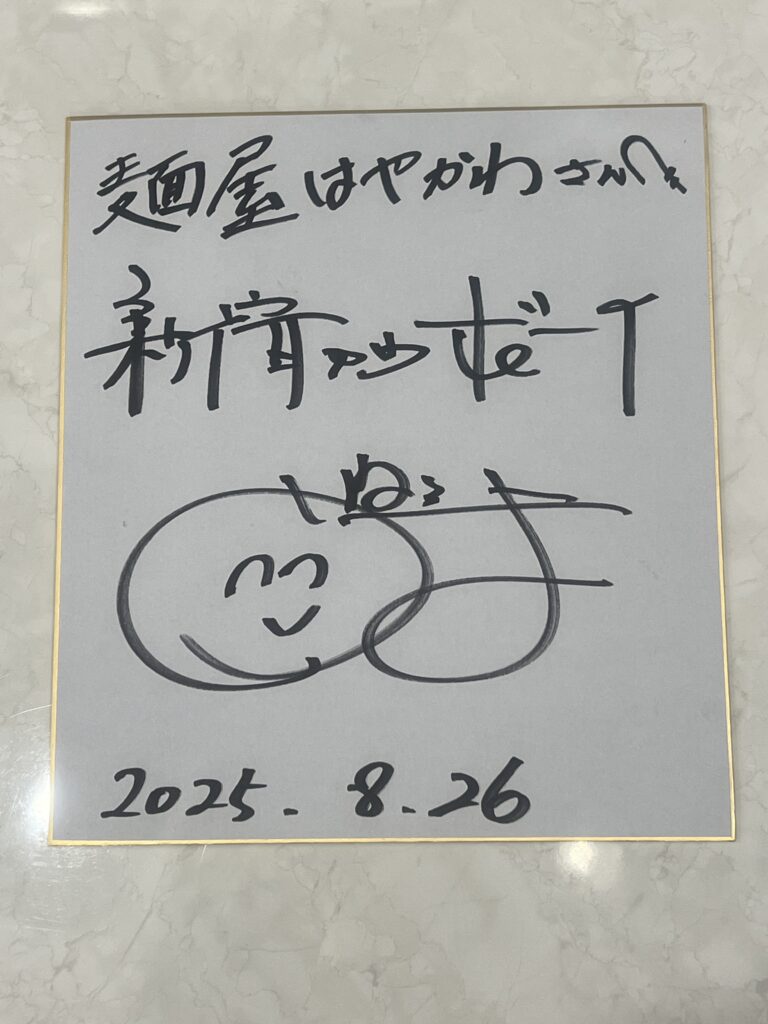 麺屋はやかわさんへ
新宿カウボーイ
2025.8.26